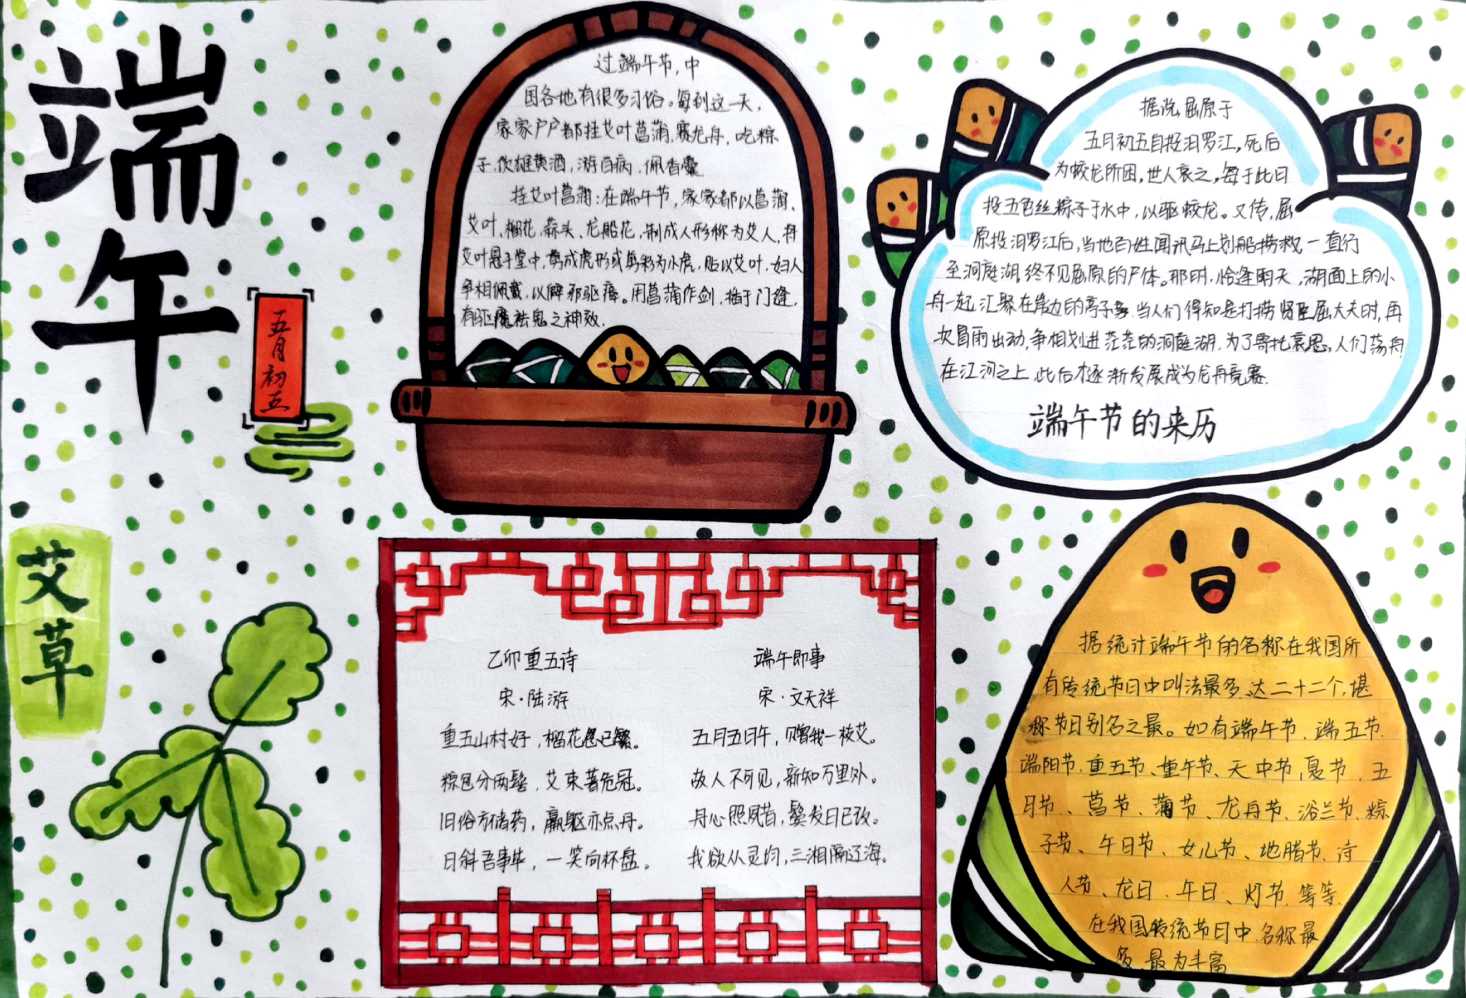 端午
五月初五
艾草
过端午节，中
国各地有很多习俗。每到这一天，
家家户户都挂艾叶菖蒲，赛龙舟，吃粽
子，饮雄黄酒，游百病，佩香囊
挂艾叶菖蒲：在端午节，家家都以菖蒲、
艾叶，榴花，蒜头，龙船花，制成人形称为艾人，将
艾叶悬于堂中，剪成虎形或剪彩为小虎，贴以艾叶，妇人
争相佩戴，以僻邪驱瘴。用菖蒲作剑，插于门楹，
有驱魔祛鬼之神效。
据说，屈原于
五月初五自投汨罗江，死后
为蛟龙所困，世人哀之，每于此日
投五色丝粽子于水中，以驱蛟龙。又传，屈
原投汨罗江后，当地百姓闻讯马上划船捞救，一直行
至洞庭湖，终不见屈原的尸体。那时，恰逢雨天，湖面上的小
舟一起汇聚在岸边的亭子旁。当人们得知是打捞贤臣屈大夫时，再
次冒雨出动，争相划进茫茫的洞庭湖。为了寄托哀思，人们荡舟
在江河之上，此后才逐渐发展成为龙舟竞赛.
端午节的来历
乙卯重五诗
宋·陆游
重五山村好，榴花忽已繁。
粽包分两髻，艾束著危冠。
旧俗方储药，羸躯亦点丹。
日斜吾事毕，一笑向杯盘。
端午即事
宋·文天祥
五月五日午，赠我一枝艾。
故人不可见，新知万里外。
丹心照夙昔，鬓发日已改。
我欲从灵均，三湘隔辽海。
据统计端午节的名称在我国所
有传统节日中叫法最多，达二十二个，堪
称节日别名之最。如有端午节、端五节、
端阳节、重五节、重午节、天中节，夏节、五
月节、菖节、蒲节、龙舟节、浴兰节、粽
子节、午日节、女儿节、地腊节、诗
人节、龙日、午日、灯节、等等、
在我国传统节日中，名称最
多，最为丰富